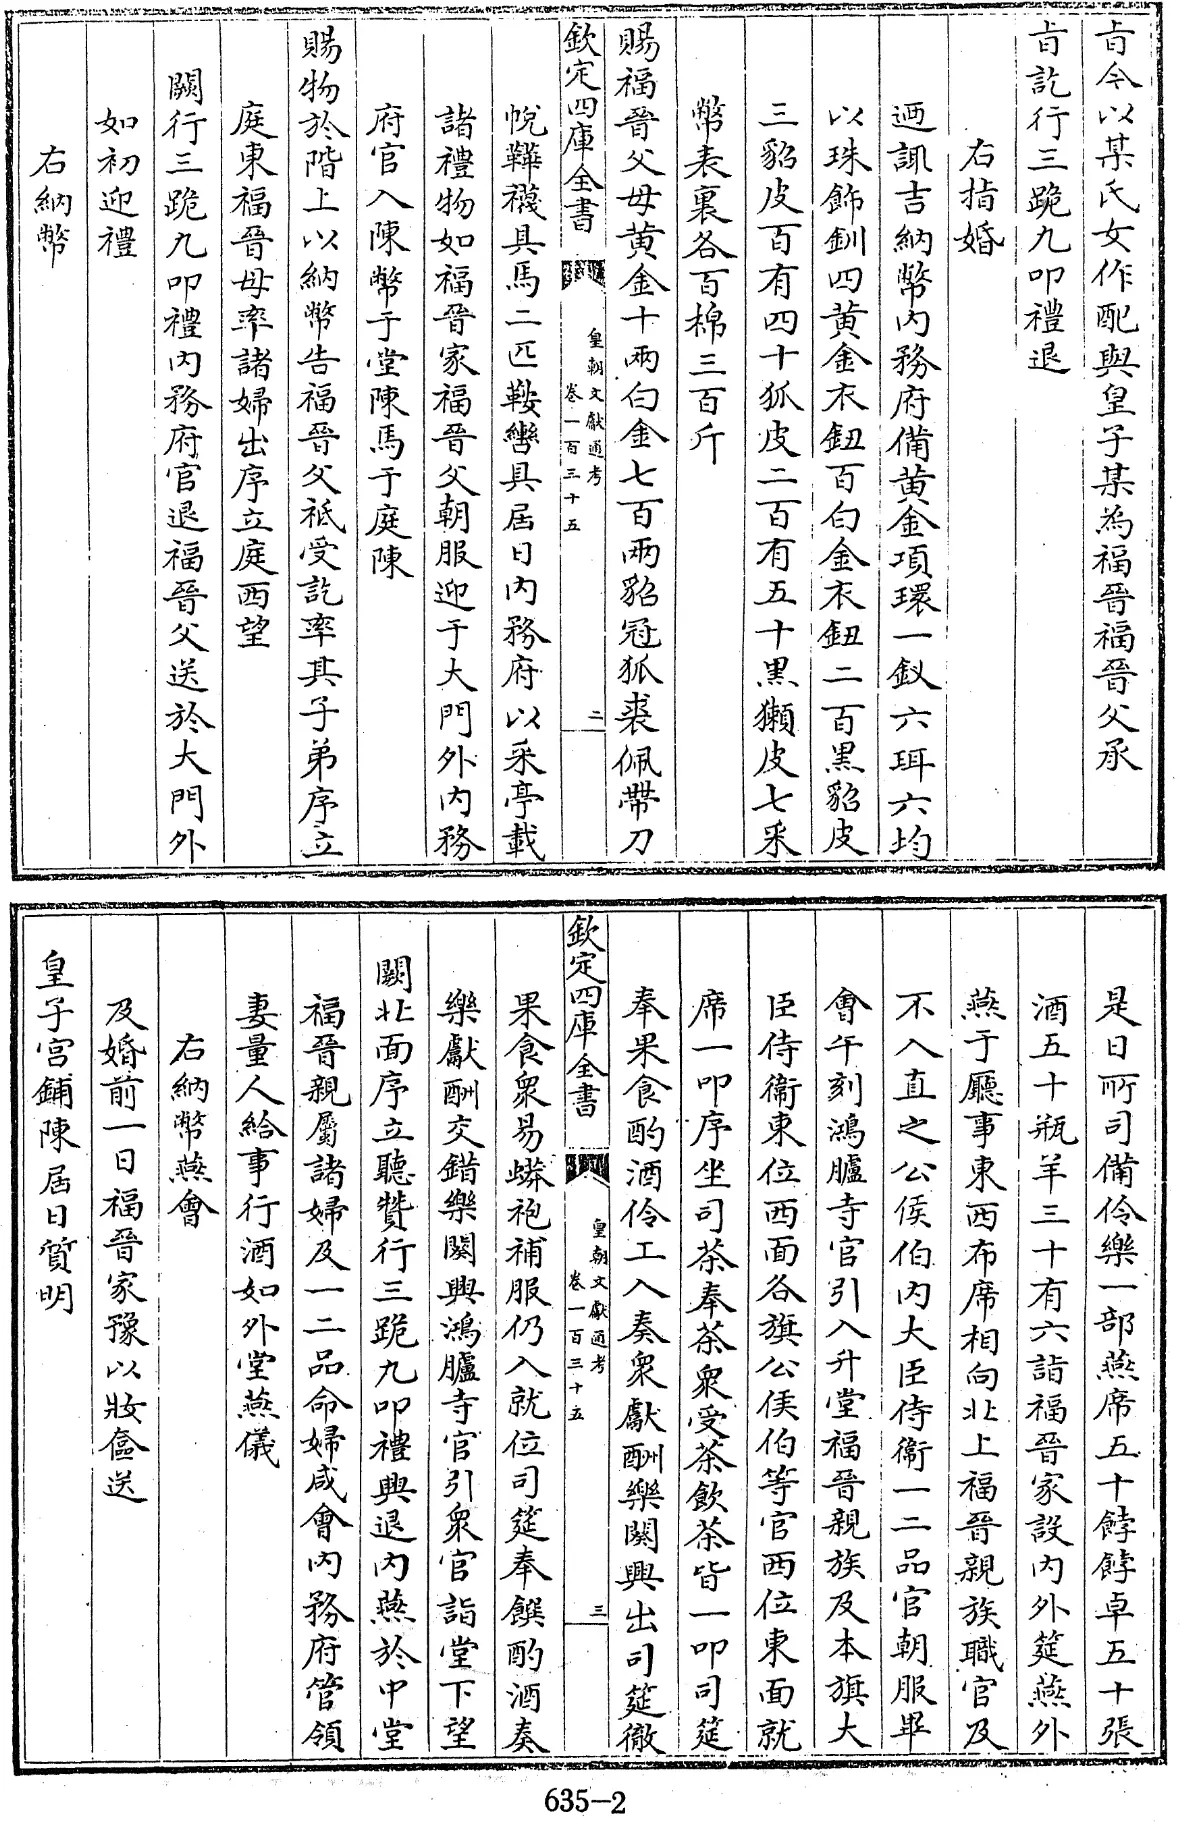 旨令以某氏女作配與皇子某為福晉福晉父承
旨訖行三跪九叩禮退
右指婚
迺諏吉納幣内務府備黄金項環一釵六珥六均
以珠飾釧四黄金衣鈕百白金衣鈕二百黒貂皮
三貂皮百有四十狐皮二百有五十黒獺皮七采
幣表裏各百棉三百斤
賜福晉父母黄金十兩白金七百兩貂冠狐裘佩帶刀
欽定四庫全書
皇朝文獻通考
卷一百三十五
二
帨鞾襪具馬二匹鞍轡具届日内務府以采亭載
諸禮物如福晉家福晉父朝服迎于大門外内務
府官入陳幣于堂陳馬于庭陳
賜物於階上以納幣告福晉父祗受訖率其子弟序立
庭東福晉母率諸婦出序立庭西望
闕行三跪九叩禮内務府官退福晉父送於大門外
如初迎禮
右納幣
是日所司備伶樂一部燕席五十餑餑卓五十張
酒五十瓶羊三十有六詣福晉家設内外筵燕外
燕于廳事東西布席相向北上福晉親族職官及
不入直之公侯伯内大臣侍衛一二品官朝服畢
會午刻鴻臚寺官引入升堂福晉親族及本旗大
臣侍衛東位西面各旗公侯伯等官西位東面就
席一叩序坐司茶奉茶衆受茶飲茶皆一叩司筵
奉果食酌酒伶工入奏衆獻酬樂闋興出司筵徹
欽定四庫全書
皇朝文獻通考
卷一百三十五
三
果食衆易蟒袍補服仍入就位司筵奉饌酌酒奏
樂獻酬交錯樂闋興鴻臚寺官引衆官詣堂下望
闕北面序立聽贊行三跪九叩禮興退内燕於中堂
福晉親屬諸婦及一二品命婦咸會内務府管領
妻量人給事行酒如外堂燕儀
右納幣燕會
及婚前一日福晉家豫以妝奩送
皇子宫鋪陳届日質明
635-2